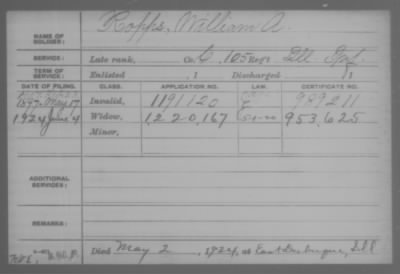 NAME OF SOLDIER: Ropps, William A.
SERVICE: Late rank, Co. C, 105 Reg't Ill. Inf.
TERM OF SERVICE: Enlisted , 1 Discharged , 1
DATE OF FILING. CLASS. APPLICATION NO. LAW. CERTIFICATE NO.
1897 May 17 Invalid, 1191120 989211
1924 June 4 Widow, 1220,167 953,625
Minor,
ADDITIONAL SERVICES:
REMARKS:
Died May 2, 1924, at East Dubuque, Ill